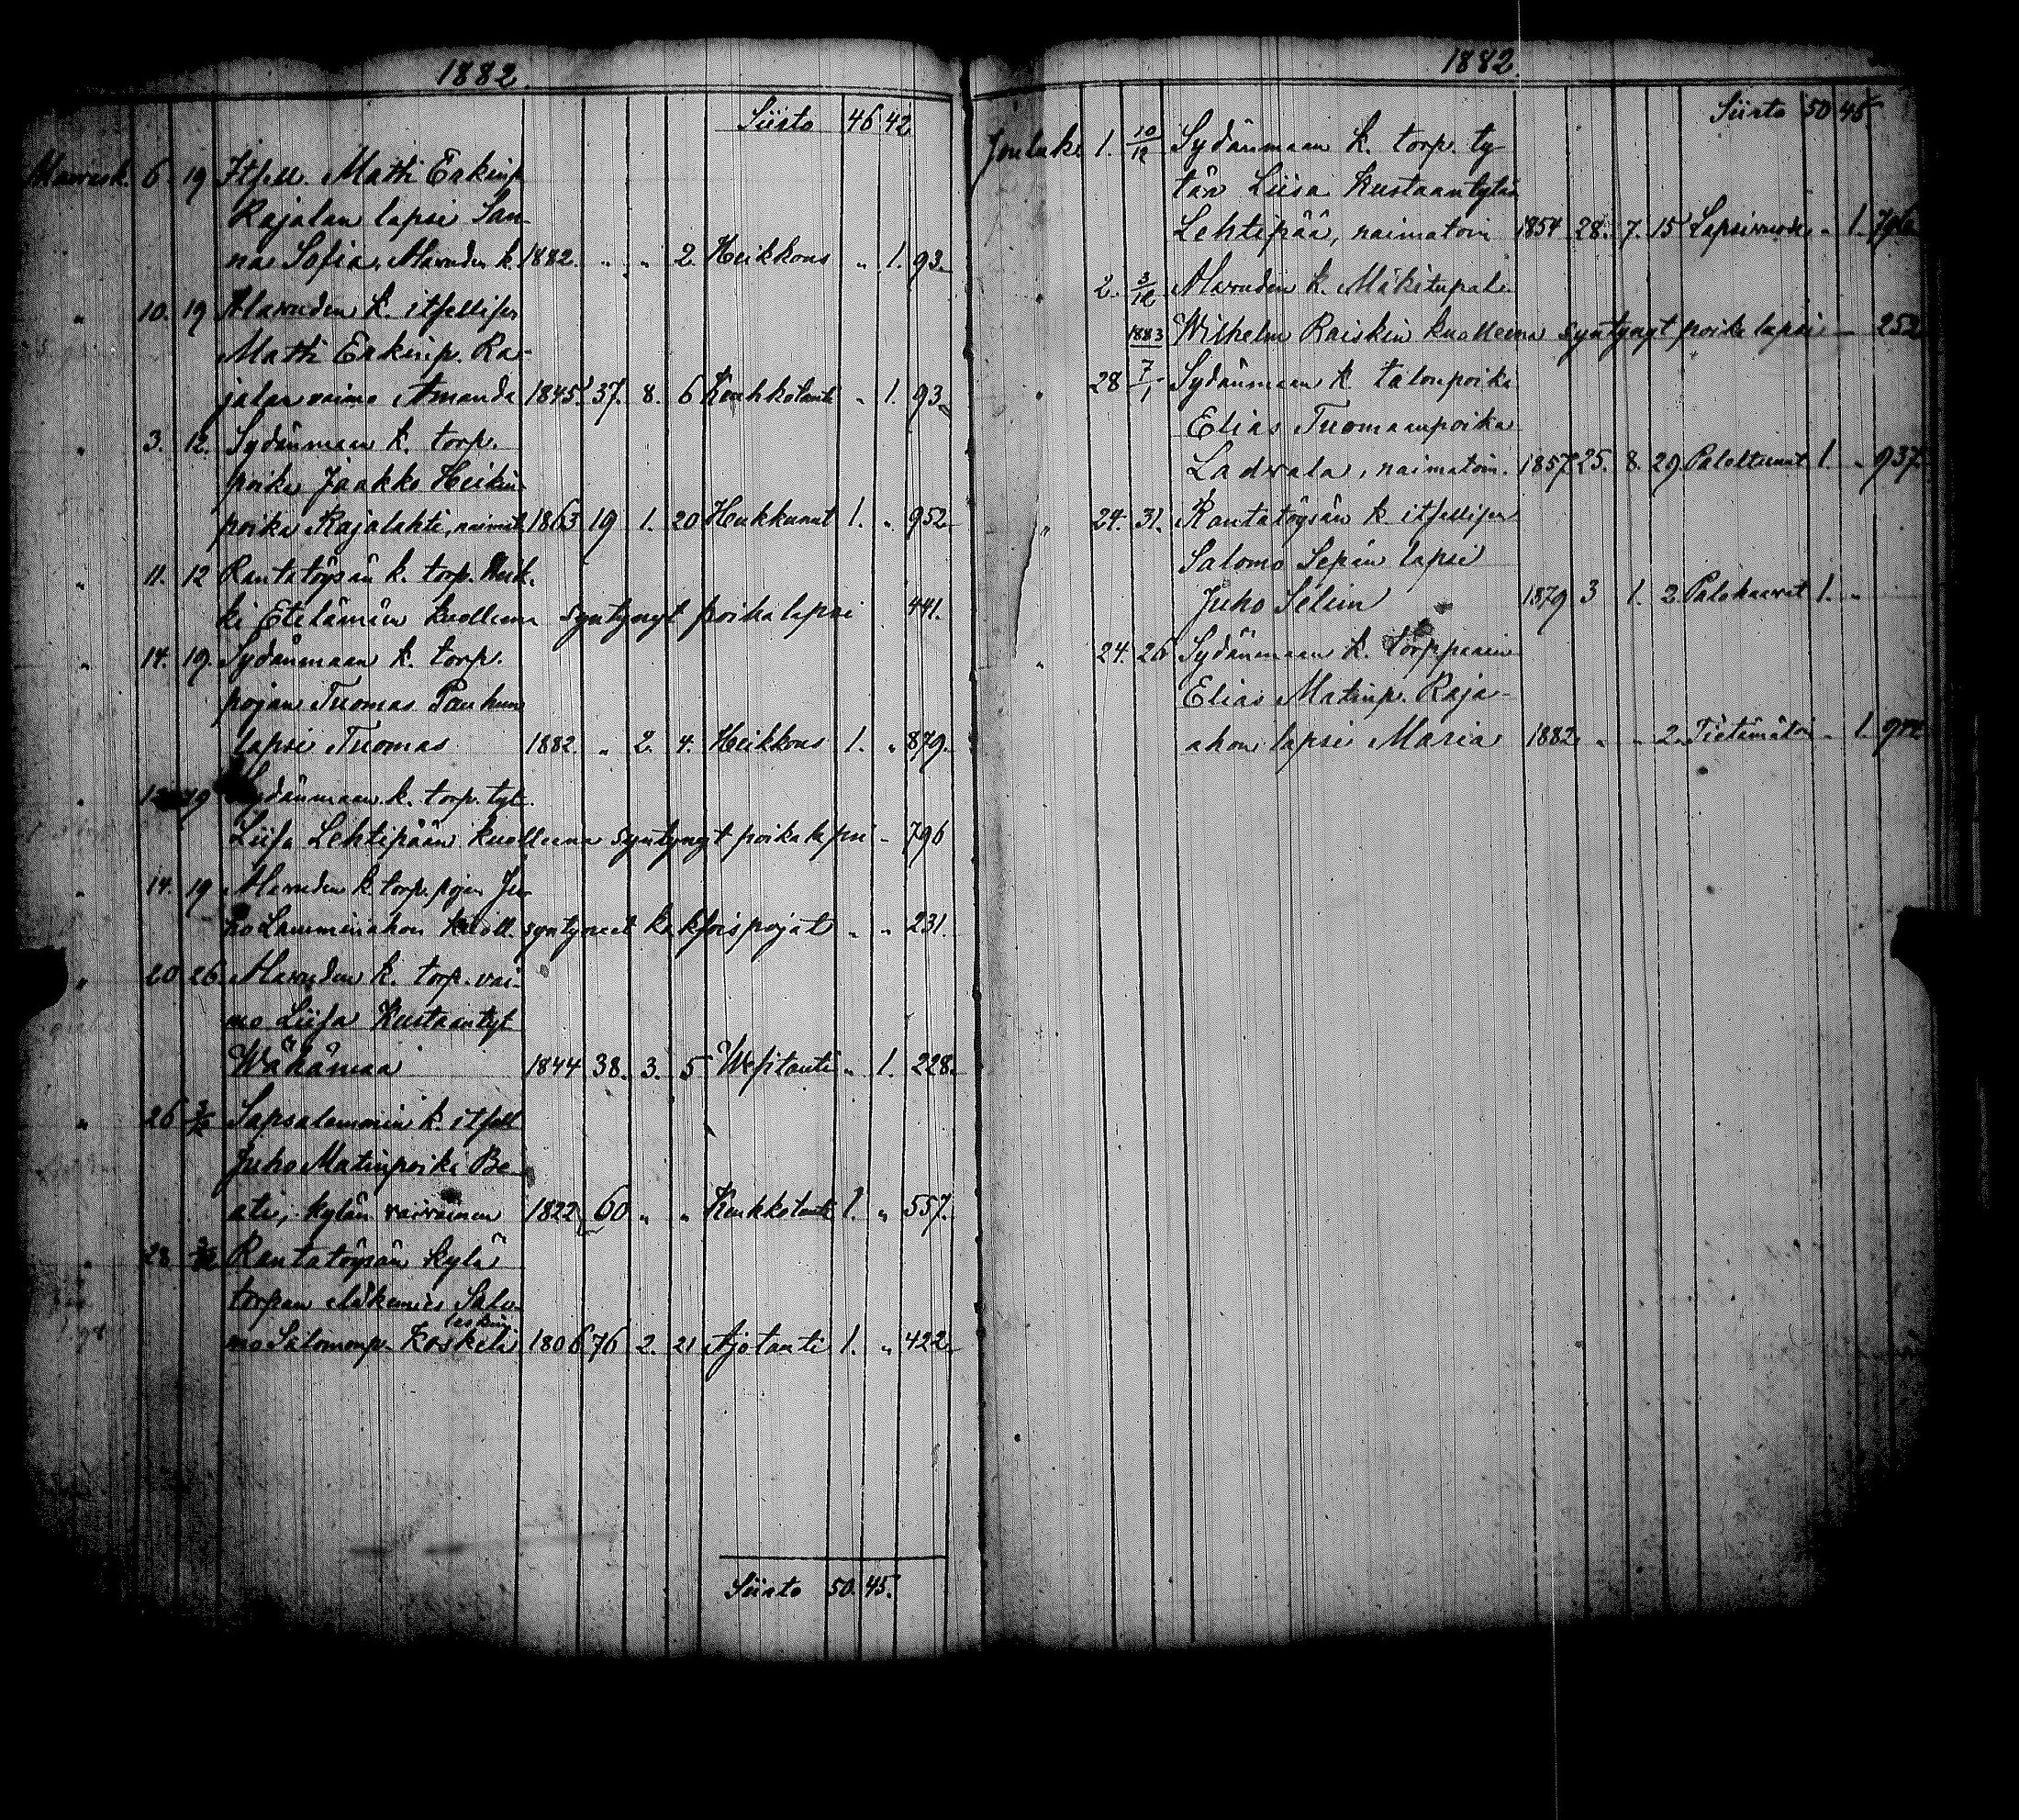 1882
Siirto 46 42
Marrask. 6. 19 Itsell. Matti Erkinp.
Rajalan lapsi San-
na Sofia, Alavuden k. 1882. " " 2. Heikkous " 1. 93.
" 10. 19 Alavuden k. itsellisen
Matti Erkinp. Ra-
jalan vaimo Amanda 1845. 37. 8. 6 Keuhkotauti " 1. 93.
" 3. 12. Sydänmaan k. torp.
poika Jaakko Heikin-
poika Rajalahti, naimat. 1863 19 1. 20 Hukkunut 1. " 952.
" 11. 12 Rantatöysän k. torp. Heik-
ki Etelämäen kuolleena syntynyt poikalapsi 441.
" 14. 19. Sydänmaan k. torp.
pojan Tuomas
lapsi Tuomas 1882. " 2. 4. Heikkous 1. " 879.
" 19 Sydänmaan k. torp. tyt.
Liisa Lehtipään kuolleena syntynyt poikalapsi - 796
" 14. 19 Alavuden k. torp. pojan Ju-
ho Lamminahon kuoll. syntyneet kaksoispojat " " 231.
" 20 26. Alavuden k. torp. vai-
mo Liisa Kustaantyt.
Wähämaa 1844 38. 3. 5 Wesitauti " 1. 228.
" 26 3/12 Sapsalammin k. itsell.
Juho Matinpoika Be-
ati, kylän vaivainen 1822 60 " " Keuhkotauti 1. " 557.
" 28 Rantatöysän kylä
torpan eläkemies Salo-
leski
mo Salomonp. Koskela 1806 76 2. 21 Ajotauti 1. " 422.
Siirto 50. 45.
1882.
Siirto 50 45.
Jouluk. 1. 10/12 Sydänmaan k. torp. ty-
tär Liisa Kustaantytär
Lehtipää, naimatoin 1854 28. 7. 15 Lapsivuode " 1. 796
" 2. 3/12 Alavuden k. Mäkitupal.
1883 Wilhelm Raiskin kuolleena syntynyt poika lapsi — 252
" 28 7/1 Sydänmaan k. talonpoika
Elias Tuomaanpoika
Ladvala, naimatoin. 1857 25. 8. 29. Paleltunut 1. " 937.
" 24. 31. Rantatöysän k. itsellisen
Salomo Sepän lapsi
Juho Selim 1879 3 1. 2. Palohaavat 1. "
" 24. 26 Sydänmaan k. torpparin
Elias Matinp. Raja-
ahon lapsi Maria 1882. " " 2. Tietämätön " 1.